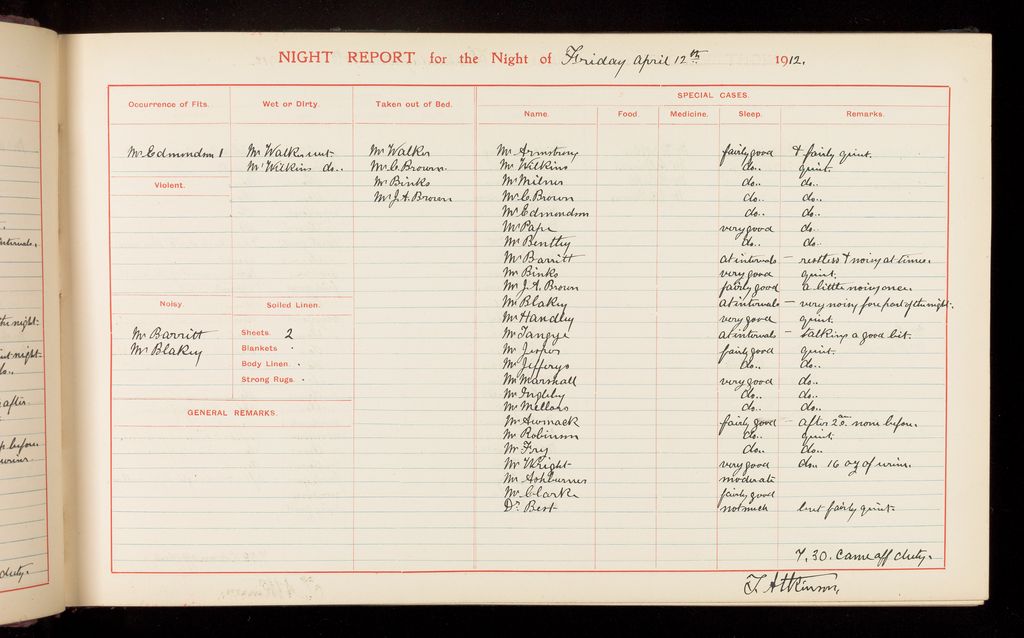 NIGHT REPORT for the Night of Friday April 12th 1912.
Occurrence of Fits. Wet or Dirty. Taken out of Bed. SPECIAL CASES.
Name. Food. Medicine. Sleep. Remarks.
Mr Edmondson 1 Mr Walker wet Mr Walker Mr Armstrong fairly good & fairly quiet.
Mr Wilkins do.. Mr C. Brown Mr Wilkins do.. quiet.
Violent. Mr Binks Mr Milner do.. do..
Mr J. A. Brown Mr C. Brown do.. do..
Mr Edmondson do.. do..
Mr Pape very good do..
Mr Bentley do.. do..
Mr Barritt at intervals – restless & noisy at times.
Mr Binks very good quiet.
Mr J. A. Brown fairly good a little noisy once.
Noisy. Soiled Linen. Mr Blakey at intervals – very noisy fore part of the night.
Mr Handley very good quiet
Mr Barritt Sheets. 2 Mr Tangye at intervals – talking a good bit.
Mr Blakey Blankets Mr fairly good quiet.
Body Linen. Mr Jefferys do.. do..
Strong Rugs. Mr Marshall very good do..
Mr Ingleby do.. do..
GENERAL REMARKS. Mr Mellors do.. do..
Mr Awmack fairly good – after 2 am none before.
Mr Robinson do.. quiet.
Mr Fry do.. do..
Mr Wright very good do.. 16 oz of urine.
Mr Ashburner moderate
Mr Clarke fairly good
Dr. Best not much but fairly quiet.
7.30. Came off duty.
T. Atkinson,
intervals.
the night.
night.
do..
after
before
urine
duty.